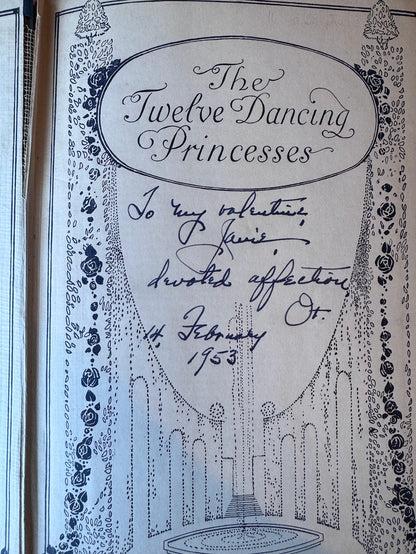 The
Twelve Dancing
Princesses
To my valentine,
Janie,
devoted affection
Ot.
14, February
1953